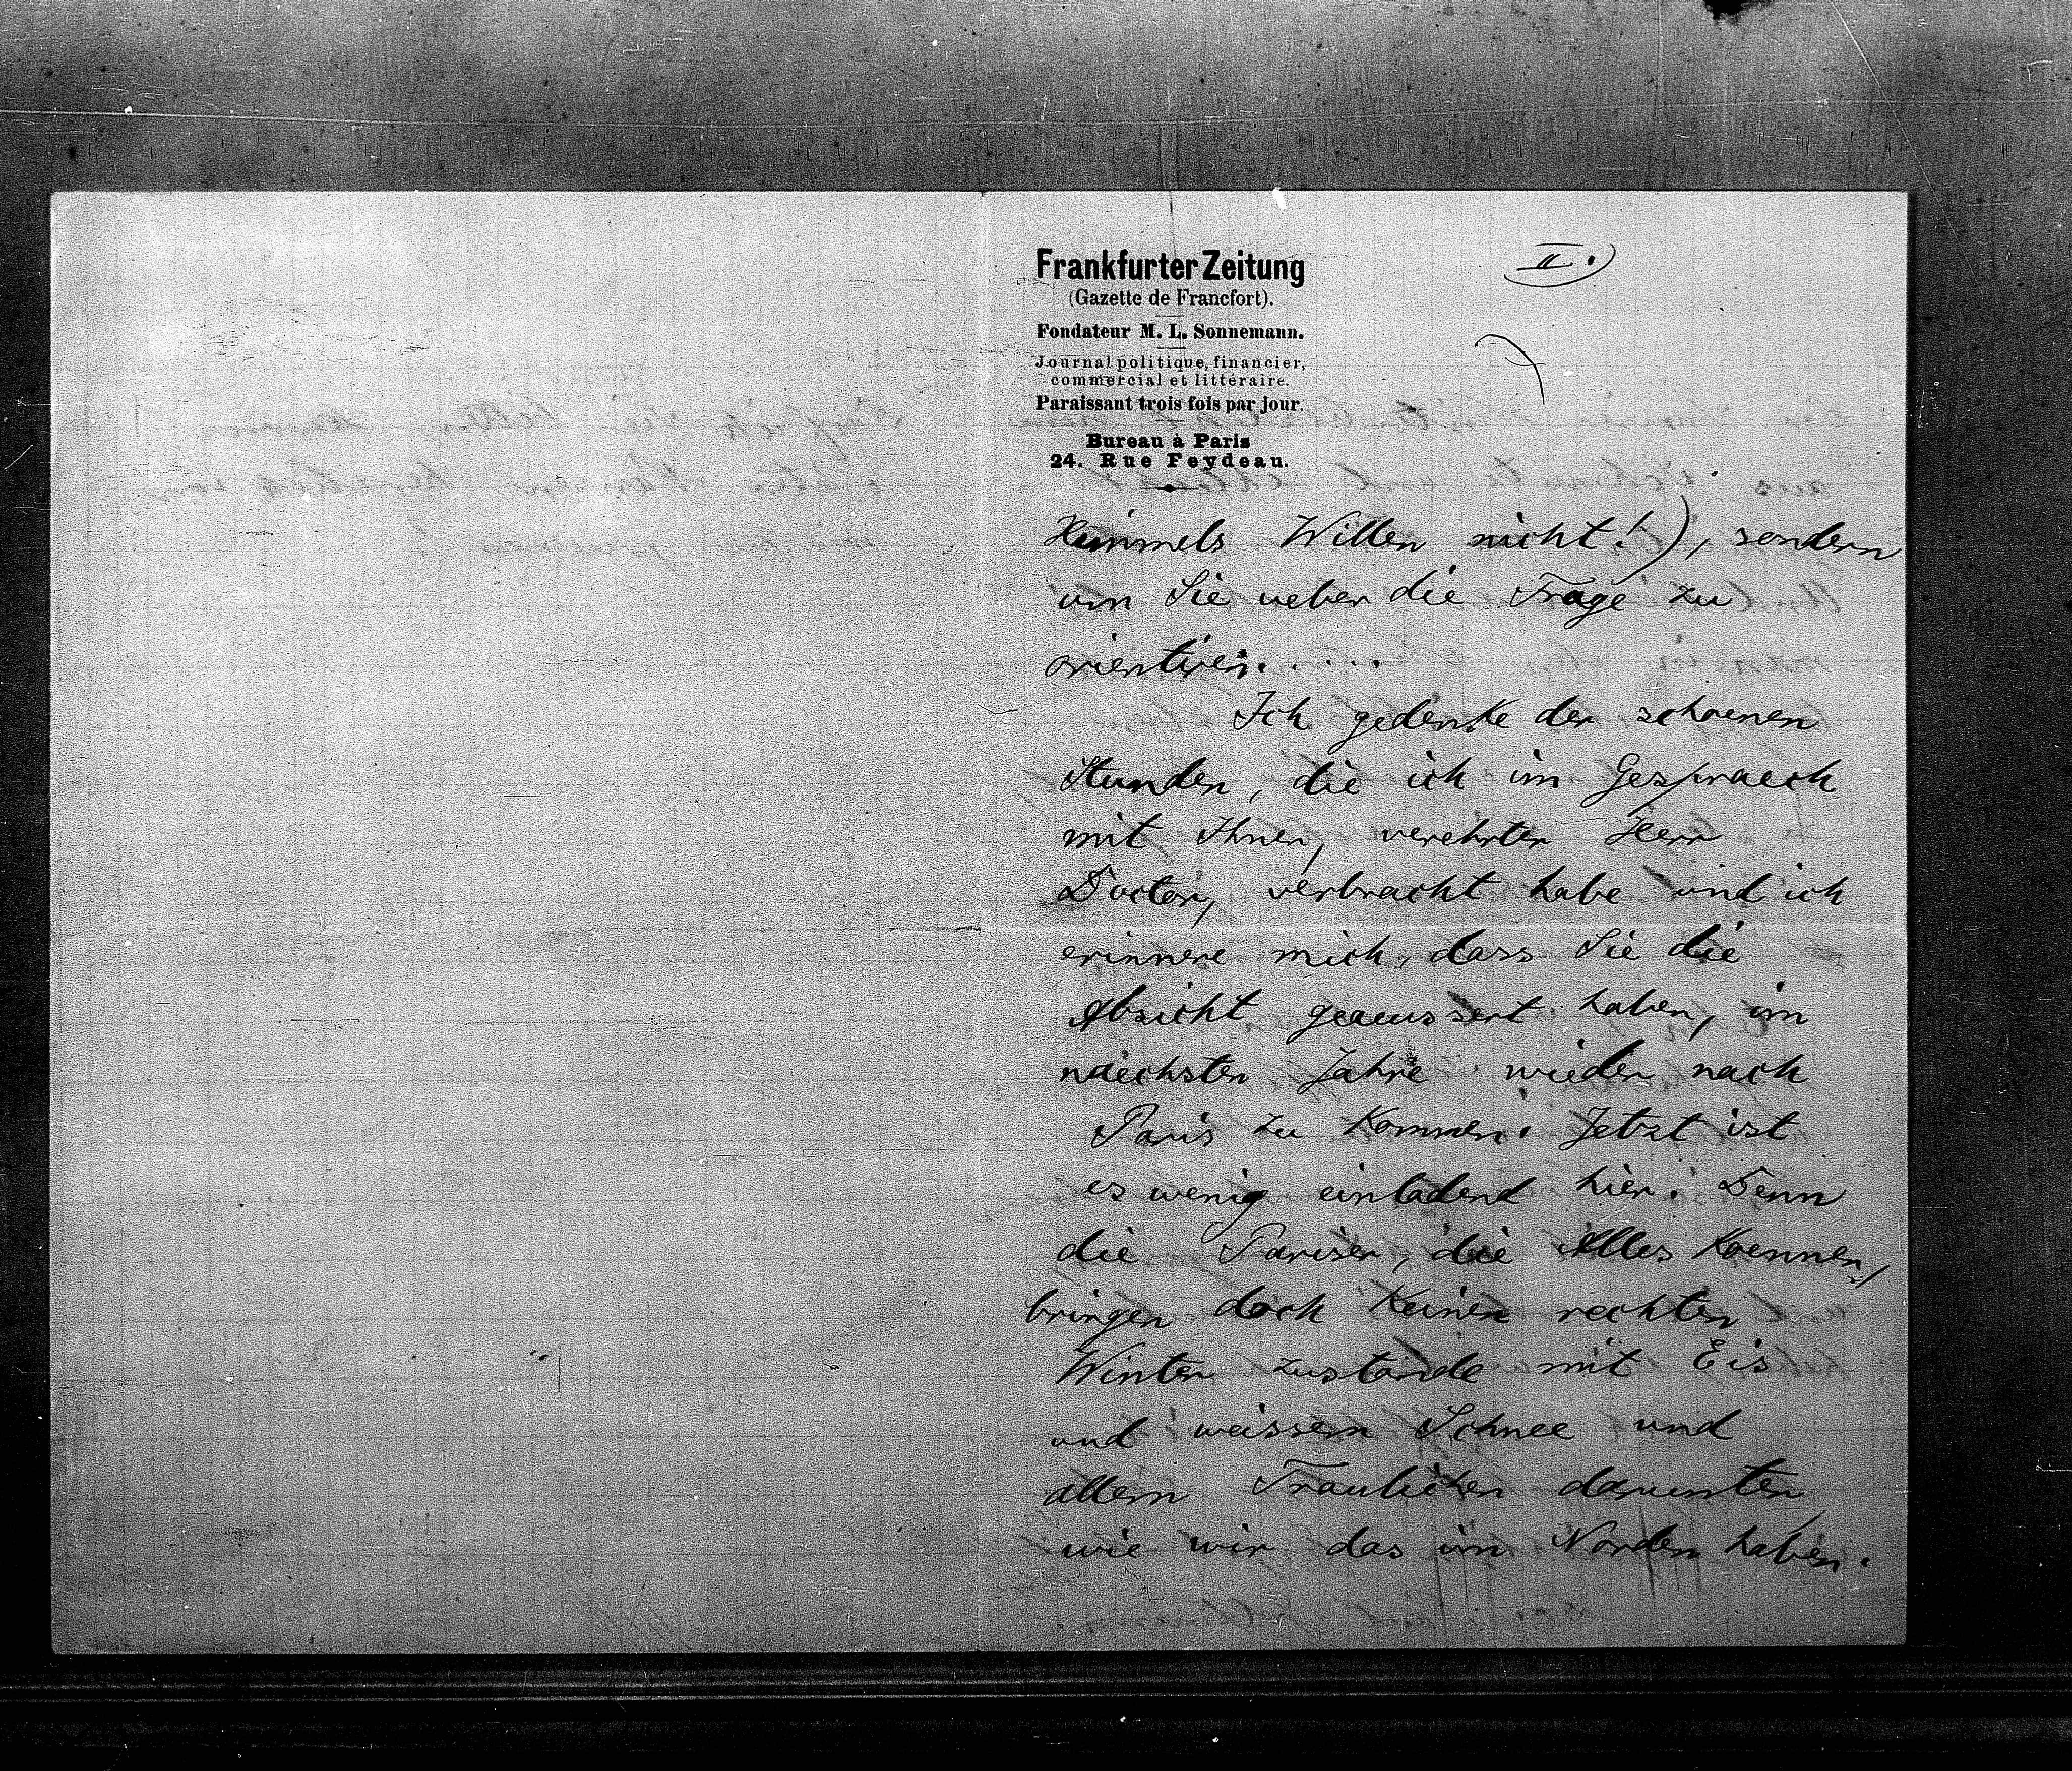 II.
Frankfurter Zeitung
(Gazette de Francfort).
Fondateur M. L. Sonnemann.
Journal politique, financier,
commercial et littéraire.
Paraissant trois fois par jour.
Bureau à Paris
24. Rue Feydeau.
Himmels Willen nicht!), sondern
um Sie ueber die Frage zu
orientiren.....
Ich gedenke der schoenen
Stunden, die ich im Gespraech
mit Ihnen, verehrter Herr
Doctor, verbracht habe und ich
erinnere mich, dass Sie die
Absicht geaeussert haben, im
naechsten Jahre wieder nach
Paris zu kommen. Jetzt ist
es wenig einladend hier. Denn
die Pariser, die Alles koennen,
bringen doch keinen rechten
Winter zustande mit Eis
und weissem Schnee und
allem Traulichen darunter
wie wir das im Norden haben.